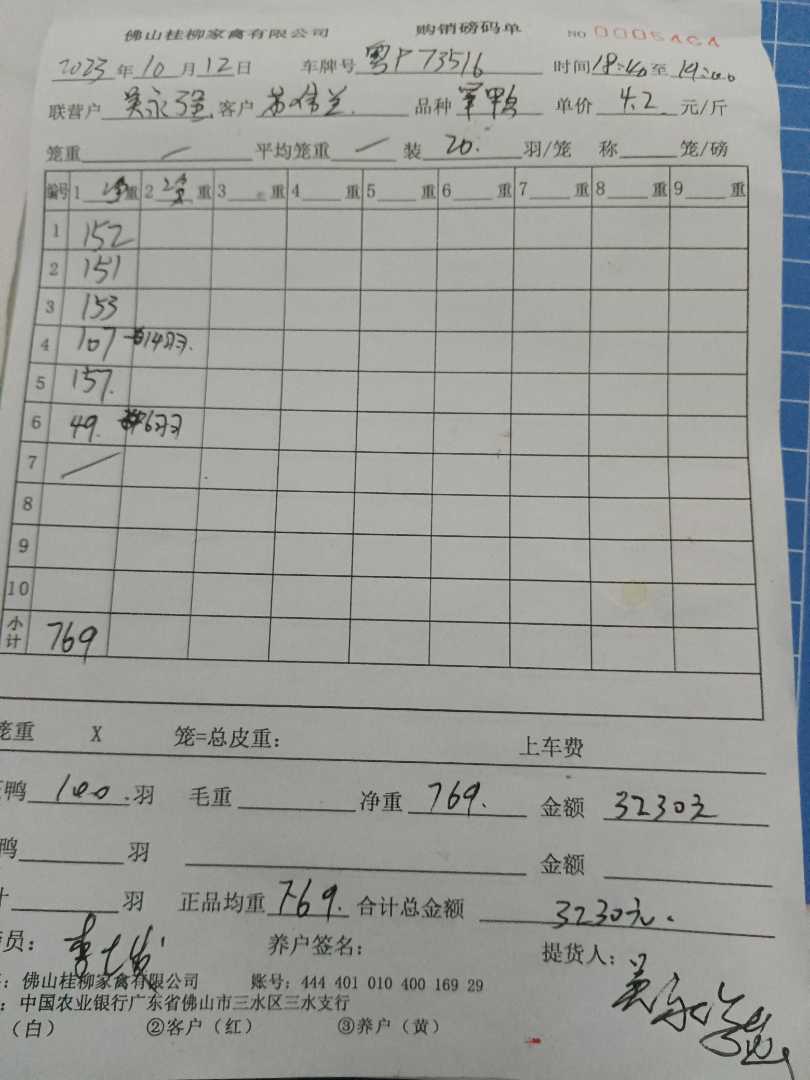 佛山桂柳家禽有限公司 购销磅码单 NO 0005464
2023年10月12日 车牌号 粤P73516 时间18:40至19:00
联营户 吴永强 客户 品种 单价 4.2 元/斤
笼重 / 平均笼重 / 装 20. 羽/笼 称 笼/磅
编号 1 净重 2 净重 3 重 4 重 5 重 6 重 7 重 8 重 9 重
1 152
2 151
3 153
4 107 14羽.
5 157.
6 49. 6羽
7 /
8
9
10
小计 769
笼重 X 笼=总皮重: 上车费
鸭 100.羽 毛重 净重 769. 金额 3230元
鸭 羽 金额
计 羽 正品均重 7.69. 合计总金额 3230元.
员: 养户签名: 提货人: 吴永强
: 佛山桂柳家禽有限公司 账号: 444 401 010 400 169 29
: 中国农业银行广东省佛山市三水区三水支行
(白) ②客户(红) ③养户(黄)